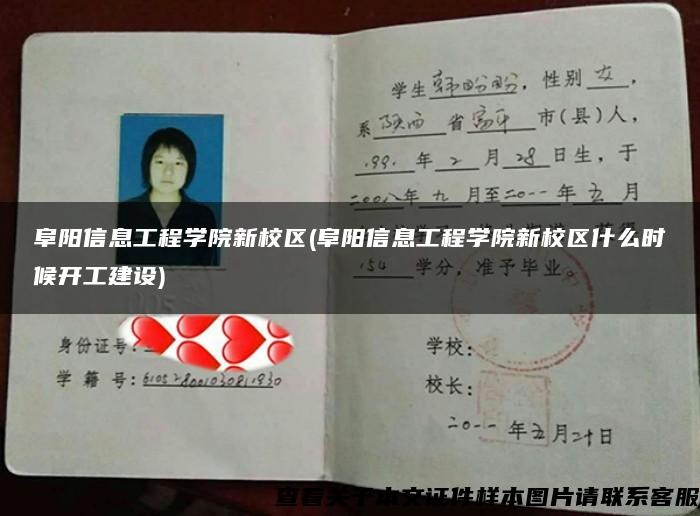 学生韩盼盼，性别女，
系陕西省富平市(县)人，
1991年2月28日生，于
二00八年九月至二0一一年五月
阜阳信息工程学院新校区(阜阳信息工程学院新校区什么时
候开工建设)
154学分，准予毕业。
身份证号：
学籍号：
学校：
校长：
二0一一年五月二十日
查看关于本文证件样本图片请联系客服